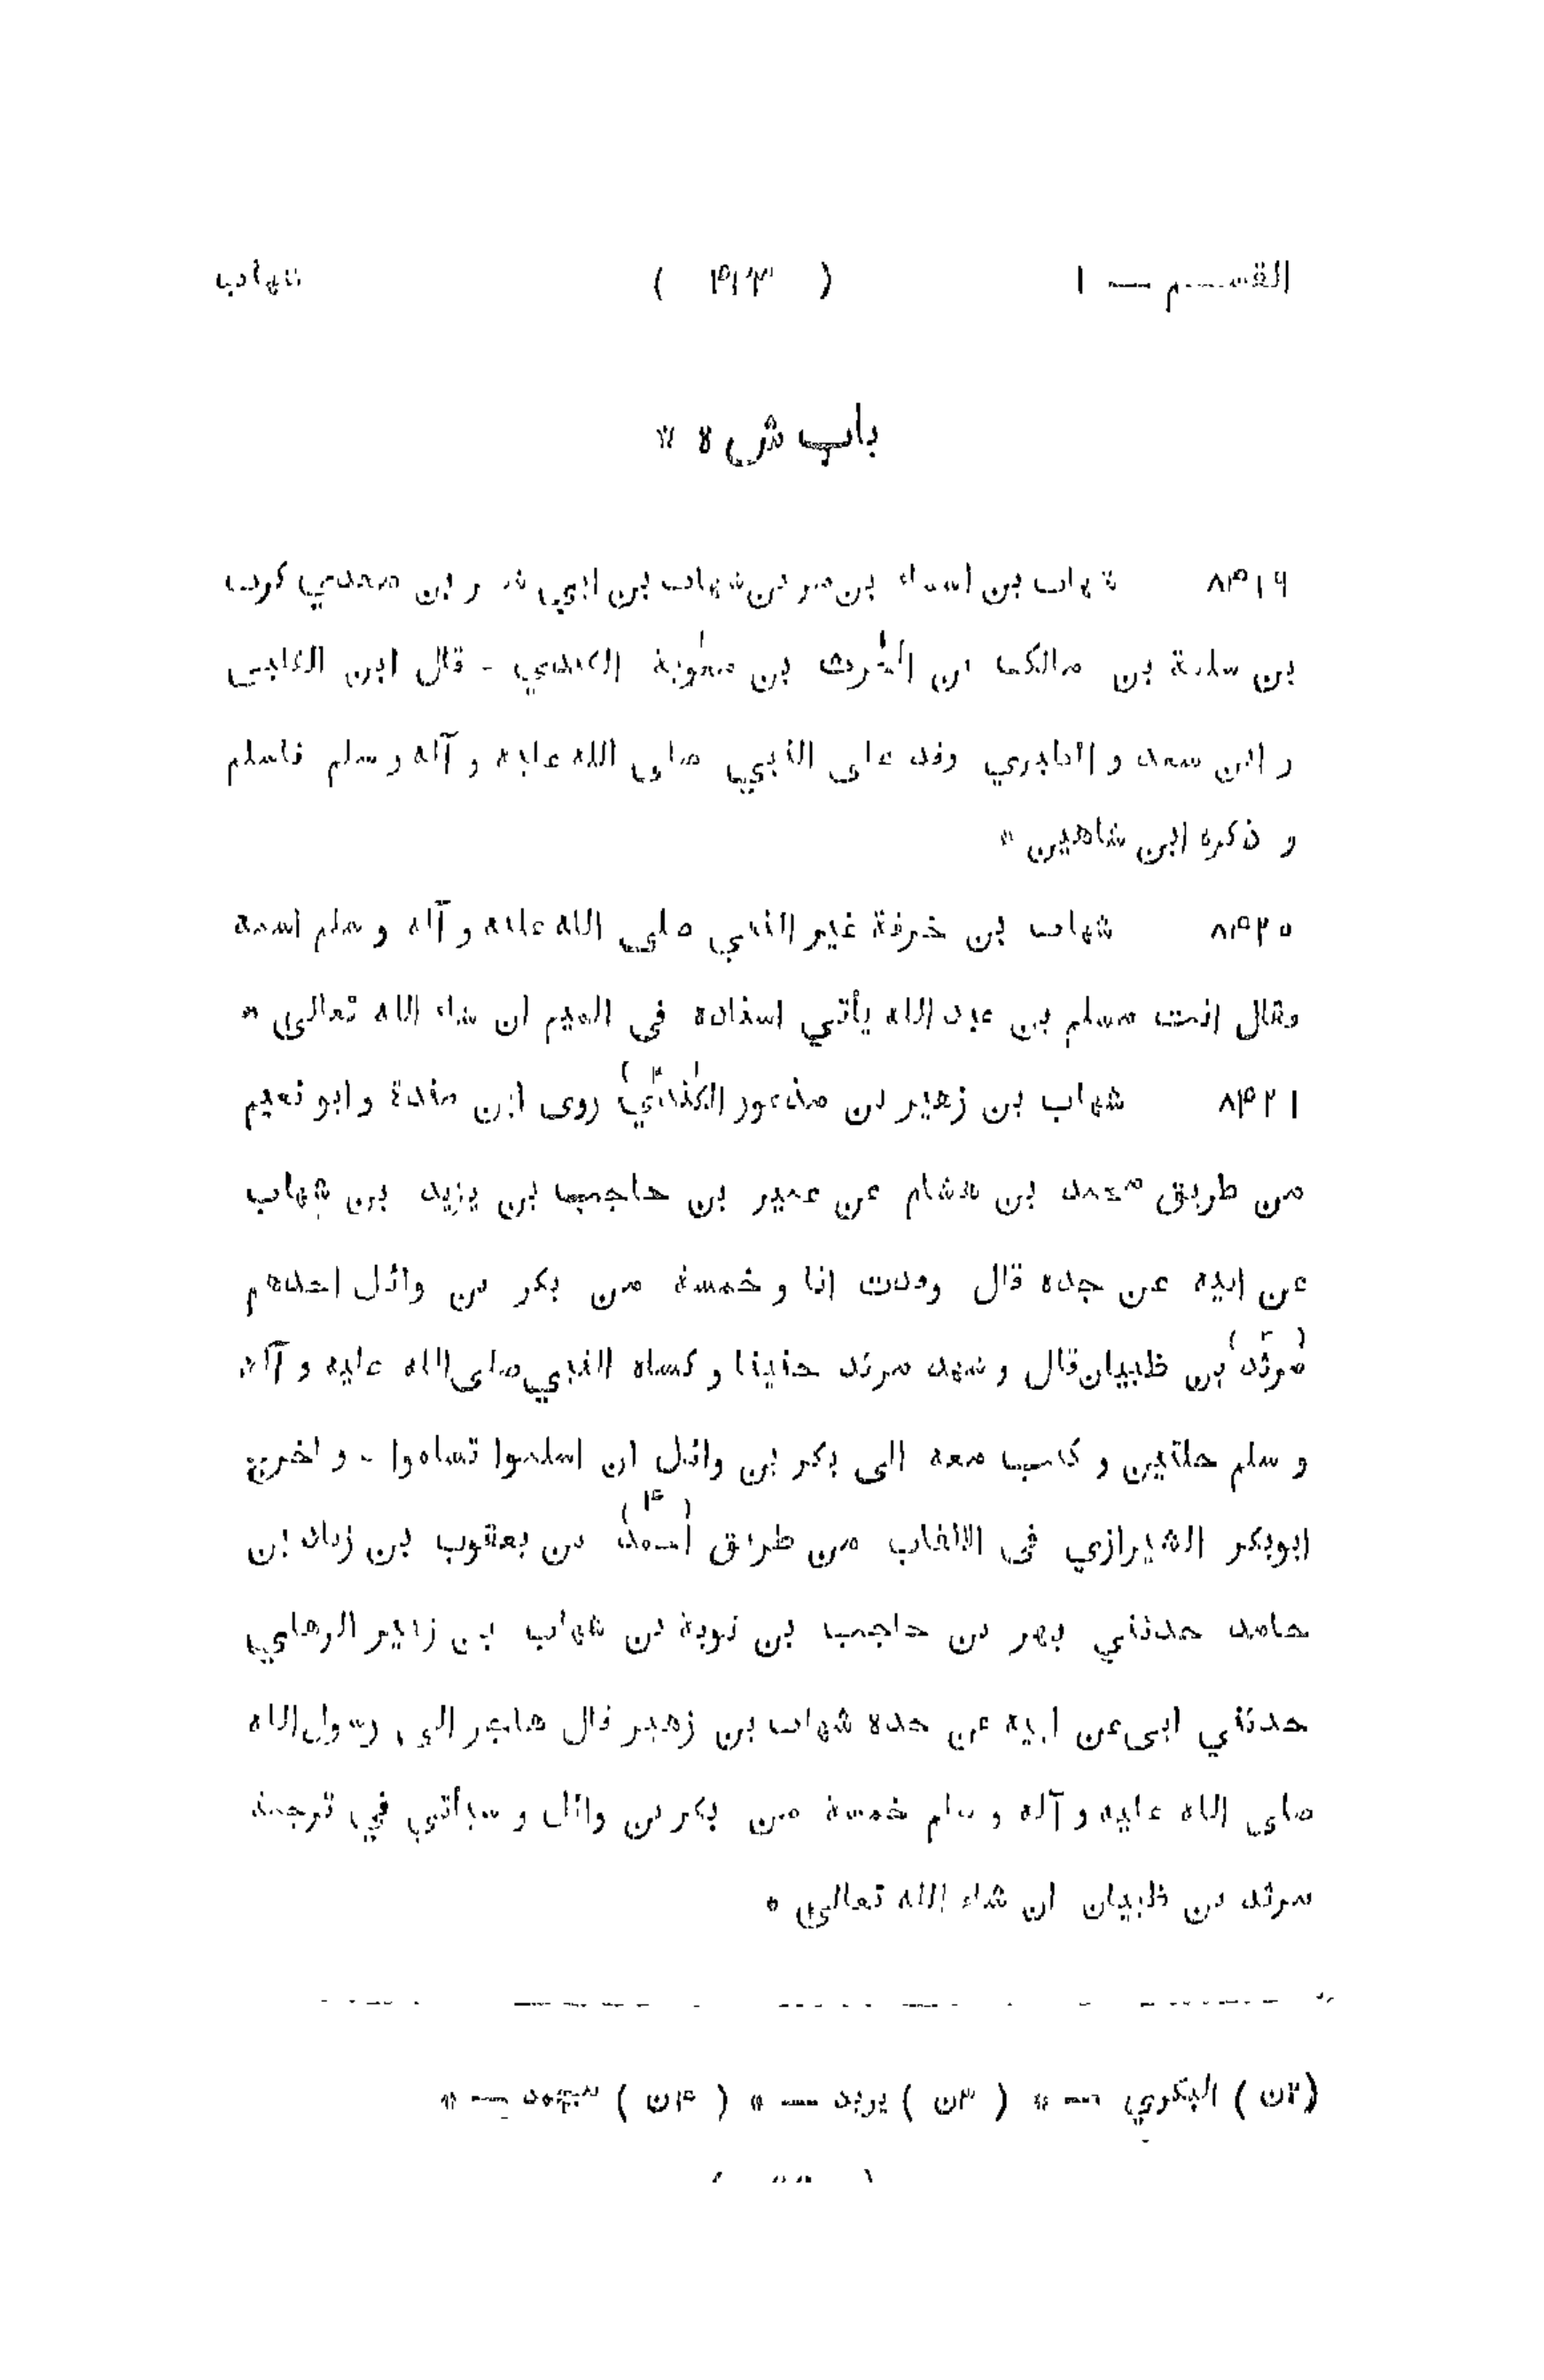 القسم — ١ ( ٤١٣ ) شهاب
باب ش ه *
٨٤١٩ شهاب بن اسماء بن مر بن شهاب بن ابي شمر بن معدي كرب
بن سلمة بن مالك بن الحٰرث بن معٰوية الكندي - قال ابن الكلبى
و ابن سعد و الطبري وفد على النبي صلى الله عليه و آله و سلم فاسلم
و ذكره ابن شاهين *
٨٤٢٠ شهاب بن خرفة غير النبي صلى الله عليه و آله و سلم اسمه
وقال انت مسلم بن عبد الله يأتي اسناده فى الميم ان شاء الله تعالى *
٨٤٢١ شهاب بن زهير بن مذعور (٢) روى ابن مندة و ابو نعيم
من طريق محمد بن هشام عن عمير بن حاجب بن يزيد بن شهاب
عن ابيه عن جده قال وفدت انا و خمسة من بكر بن وائل احدهم
مرثد (٣) بن ظبيان قال و شهد مرثد حنينا و كساه النبي صلى الله عليه و آله
و سلم حلتين و كتب معه الى بكر بن وائل ان اسلموا تسلموا - و اخرج
ابوبكر الشيرازي فى الالقاب من طريق (٤) بن يعقوب بن زياد بن
حامد حدثني بن حاجب بن بن شهاب بن زهير
حدثني ابى عن ابيه عن جده شهاب بن زهير قال هاجر الى رسول الله
صلى الله عليه و آله و سلم خمسة من بكر بن وائل و سيأتي في ترجمة
مرثد بن ظبيان ان شاء الله تعالى *
(٢ن) البكري — * (٣ن) يزيد — * (٤ن) — *